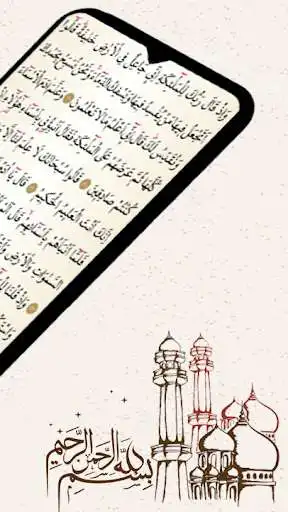 وَإِذْ قَالَ رَبُّكَ لِلْمَلَٰٓئِكَةِ إِنِّي جَاعِلٌ فِي ٱلْأَرْضِ خَلِيفَةً قَالُوٓا۟
أَتَجْعَلُ فِيهَا مَن يُفْسِدُ فِيهَا وَيَسْفِكُ ٱلدِّمَآءَ وَنَحْنُ نُسَبِّحُ بِحَمْدِكَ
وَنُقَدِّسُ لَكَ قَالَ إِنِّيٓ أَعْلَمُ مَا لَا تَعْلَمُونَ وَعَلَّمَ ءَادَمَ ٱلْأَسْمَآءَ
كُلَّهَا ثُمَّ عَرَضَهُمْ عَلَى ٱلْمَلَٰٓئِكَةِ فَقَالَ أَنۢبِـُٔونِي
كُنتُمْ صَٰدِقِينَ قَالُوا۟ سُبْحَٰنَكَ لَا عِلْمَ لَنَآ
إِنَّكَ أَنتَ ٱلْعَلِيمُ ٱلْحَكِيمُ قَالَ
فَلَمَّآ أَنۢبَأَهُم بِأَسْمَآئِهِمْ قَالَ
ٱلسَّمَٰوَٰتِ وَٱلْأَرْضِ
وَإِذْ قُلْنَا
بِسْمِ اللهِ الرَّحْمٰنِ الرَّحِيمِ